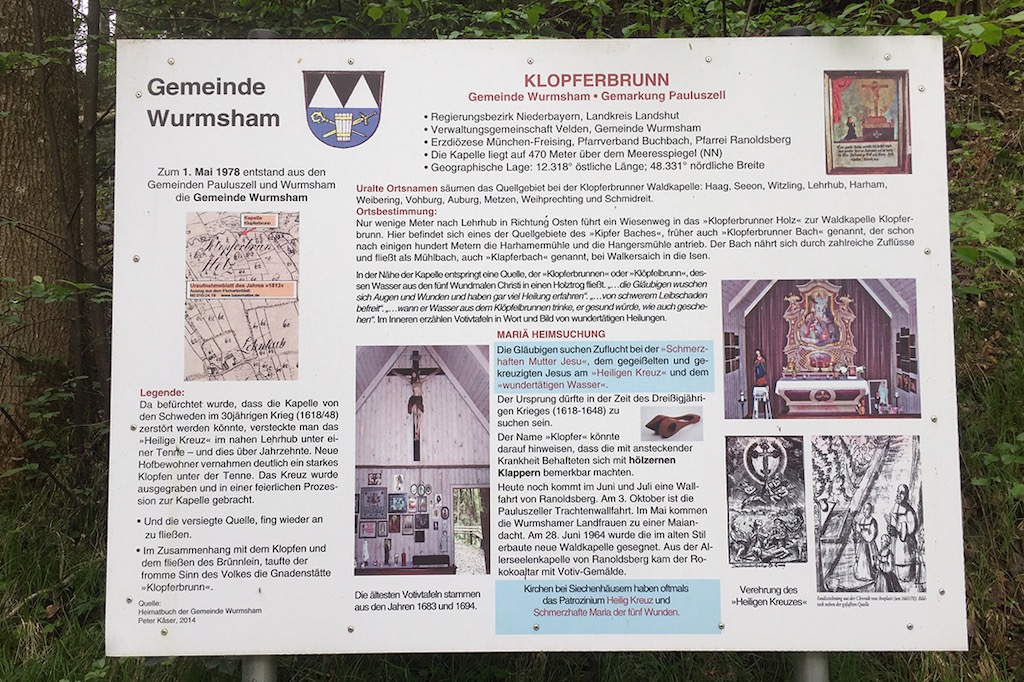 Gemeinde
Wurmsham
Zum 1. Mai 1978 entstand aus den
Gemeinden Pauluszell und Wurmsham
die Gemeinde Wurmsham
Kapelle
Klopferbrunn
Klopferbrun
Holz
Uraufnahmeblatt des Jahres »1812«
Lehrhub
Legende:
Da befürchtet wurde, dass die Kapelle von
den Schweden im 30jährigen Krieg (1618/48)
zerstört werden könnte, versteckte man das
»Heilige Kreuz« im nahen Lehrhub unter ei-
ner Tenne – und dies über Jahrzehnte. Neue
Hofbewohner vernahmen deutlich ein starkes
Klopfen unter der Tenne. Das Kreuz wurde
ausgegraben und in einer feierlichen Prozes-
sion zur Kapelle gebracht.
• Und die versiegte Quelle, fing wieder an
zu fließen.
• Im Zusammenhang mit dem Klopfen und
dem fließen des Brünnlein, taufte der
fromme Sinn des Volkes die Gnadenstätte
»Klopferbrunn«.
Quelle:
Heimatbuch der Gemeinde Wurmsham
Peter Käser, 2014
KLOPFERBRUNN
Gemeinde Wurmsham • Gemarkung Pauluszell
• Regierungsbezirk Niederbayern, Landkreis Landshut
• Verwaltungsgemeinschaft Velden, Gemeinde Wurmsham
• Erzdiözese München-Freising, Pfarrverband Buchbach, Pfarrei Ranoldsberg
• Die Kapelle liegt auf 470 Meter über dem Meeresspiegel (NN)
• Geographische Lage: 12.318° östliche Länge; 48.331° nördliche Breite
Uralte Ortsnamen säumen das Quellgebiet bei der Klopferbrunner Waldkapelle: Haag, Seeon, Witzling, Lehrhub, Harham,
Weibering, Vohburg, Auburg, Metzen, Weihprechting und Schmidreit.
Ortsbestimmung:
Nur wenige Meter nach Lehrhub in Richtung Osten führt ein Wiesenweg in das »Klopferbrunner Holz« zur Waldkapelle Klopfer-
brunn. Hier befindet sich eines der Quellgebiete des »Kipfer Baches«, früher auch »Klopferbrunner Bach« genannt, der schon
nach einigen hundert Metern die Harhamermühle und die Hangersmühle antrieb. Der Bach nährt sich durch zahlreiche Zuflüsse
und fließt als Mühlbach, auch »Klapferbach« genannt, bei Walkersaich in die Isen.
In der Nähe der Kapelle entspringt eine Quelle, der »Klopferbrunnen« oder »Klöpfelbrunn«, des-
sen Wasser aus den fünf Wundmalen Christi in einen Holztrog fließt. „...die Gläubigen wuschen
sich Augen und Wunden und haben gar viel Heilung erfahren“. „...von schwerem Leibschaden
befreit“. „...wann er Wasser aus dem Klöpflbrunnen trinke, er gesund würde, wie auch gesche-
hen“. Im Inneren erzählen Votivtafeln in Wort und Bild von wundertätigen Heilungen.
MARIÄ HEIMSUCHUNG
Die Gläubigen suchen Zuflucht bei der »Schmerz-
haften Mutter Jesu«, dem gegeißelten und ge-
kreuzigten Jesus am »Heiligen Kreuz« und dem
»wundertätigen Wasser«.
Der Ursprung dürfte in der Zeit des Dreißigjähri-
gen Krieges (1618-1648) zu
suchen sein.
Der Name »Klopfer« könnte
darauf hinweisen, dass die mit ansteckender
Krankheit Behafteten sich mit hölzernen
Klappern bemerkbar machten.
Heute noch kommt im Juni und Juli eine Wall-
fahrt von Ranoldsberg. Am 3. Oktober ist die
Pauluszeller Trachtenwallfahrt. Im Mai kommen
die Wurmshamer Landfrauen zu einer Maian-
dacht. Am 28. Juni 1964 wurde die im alten Stil
erbaute neue Waldkapelle gesegnet. Aus der Al-
lerseelenkapelle von Ranoldsberg kam der Ro-
kokoaltar mit Votiv-Gemälde.
Kirchen bei Siechenhäusern haben oftmals
das Patrozinium Heilig Kreuz und
Schmerzhafte Maria der fünf Wunden.
Die ältesten Votivtafeln stammen
aus den Jahren 1683 und 1694.
Verehrung des
»Heiligen Kreuzes«